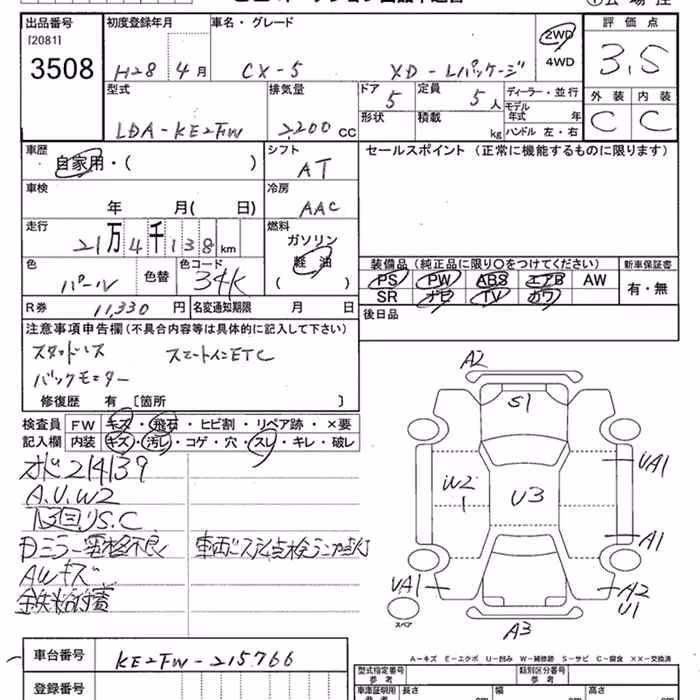 出品番号 初度登録年月 車名・グレード 2WD 評価点
[2081] 4WD
3508 H28年4月 CX-5 XD-Lパッケージ 3.5
型式 排気量 ドア 定員 ディーラー・並行 外装 内装
5 5人 モデル年式 年
LDA-KE2FW 2,200cc 形状 積載 kg ハンドル 左・右 C C
車歴 シフト セールスポイント (正常に機能するものに限ります)
自家用・( ) AT
車検 冷房
年 月( 日) AAC
走行 燃料
21万4千138km ガソリン
軽油
色 色替 色コード ( ) 装備品 (純正品に限り○をつけてください) 新車保証書
パール 34K PS PW ABS エアB AW 有・無
SR ナビ TV カワ
R券 11,330円 名変通知期限 月 日 後日品
注意事項申告欄 (不具合内容等は具体的に記入して下さい)
スタッドレス スマートインETC
バックモニター
修復歴 有 [箇所 ]
検査員 FW キズ・飛石・ヒビ割・リペア跡・×要
記入欄 内装 キズ・汚レ・コゲ・穴・スレ・キレ・破レ
214139
A.U.W2
S.C
Dミラー格納不良
AWキズ
鉄粉付着
A2
S1
W2
1
U3
UA1
A1
UA1
A2
U1
A3
スペア
A-キズ E-エクボ U-凹み W-補修跡 S-サビ C-腐食 ××-交換済
車台番号 KE2FW-215766 型式指定番号 参考 類別区分番号 参考
登録番号 車庫証明用 参考 長さ cm 幅 cm 高さ cm